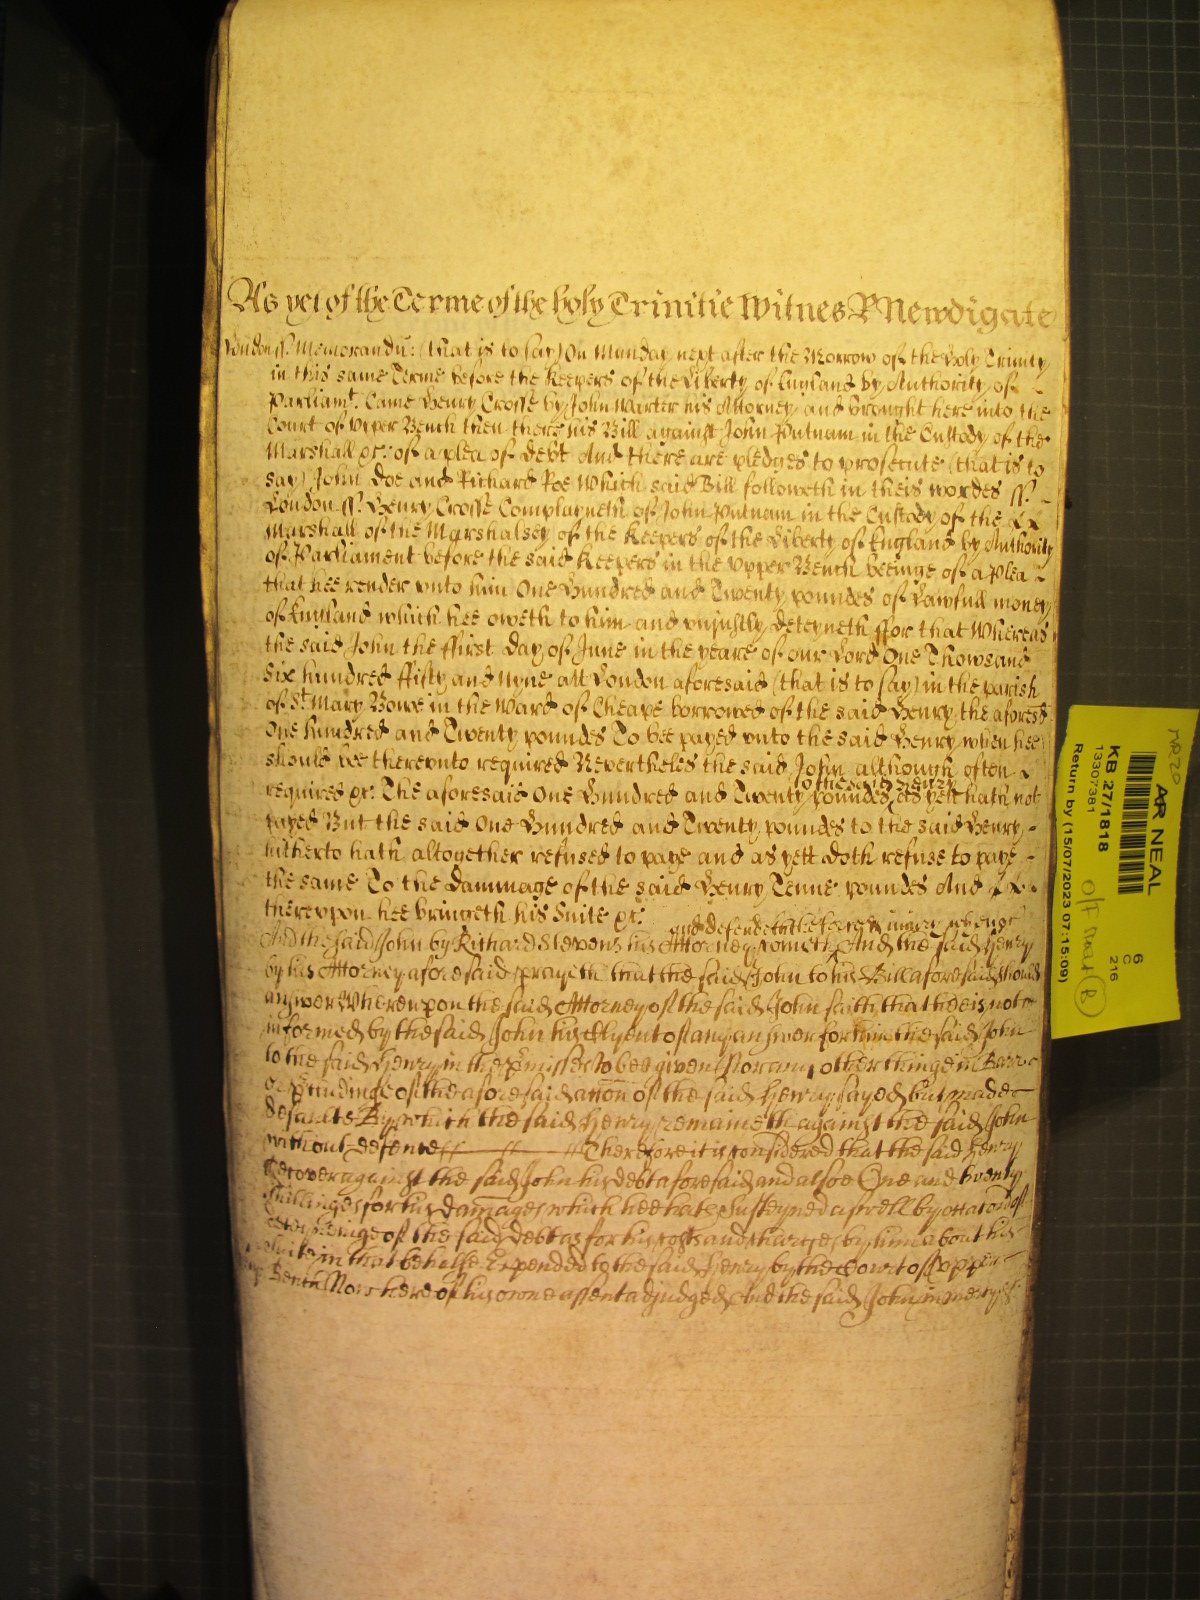 As yet of the Terme of the holy Trinitie Witnes R Newdigate
London ss. Memorandu: (that is to say) On Munday next after the Morrow of the Holy Trinity
in this same Terme before the Keepers of the Liberty of England by Authority of
Parliamt. Came Henry Crosse by John Warter his Attorney and brought here into the
Court of Upper Bench then there his Bill against John Putnam in the Custody of the
Marshall &c: of a plea of debt And there are pledges to prosecute (that is to
say) John Doe and Richard Roe Which said Bill followeth in theis wordes ss.
London ss. Henry Crosse Complayneth of John Putnam in the Custody of the
Marshall of the Marshalsey of the Keepers of the Liberty of England by Authority
of Parliament before the said Keepers in the Upper Bench beeinge of a Plea
that hee render vnto him One Hundred and Twenty poundes of Lawfull money
of England which hee oweth to him and vniustly deteyneth ffor that Whereas
the said John the ffirst Day of June in the yeare of our Lord One Thowsand
Six hundred ffifty and nyne att London aforesaid (that is to say) in the parish
of St. Mary Bowe in the Ward of Cheape borrowed of the said Henry the aforesd
One hundred and Twenty poundes To bee payed vnto the said Henry when hee
should bee therevnto required Neverthelesse the said John although often
to the said Henry
required &c. The aforesaid One Hundred and Twenty poundes as yett hath not
payed But the said One Hundred and Twenty poundes to the said Henry
hitherto hath altogether refused to paye and as yett doth refuse to paye
the same To the Dammage of the said Henry Tenne poundes And
therevpon hee bringeth his Suite &c.
and defendeth the force & iniury whence
And the said John by Richard Stevens his Attorney cometh And the said Henry
by his Attorney aforesaid prayeth that the said John to his Bill aforesaid should
answer Whereupon the said Attorney of the said John saith that hee is not
informed by the said John his Clyent of any answer for him the said John
to the said Henry in the prmisses to bee given Nor any other thinge in Barre
or prudince of the aforesaid accon of the said Henry sayed but made
default By which the said Henry remaineth against the said John
without defence Therefore it is considered that the said Henry
Recover against the said John his debt aforesaid and alsoe One and twenty
shillinges for his damages which hee hath susteyned aswell by occacon of
deteyninge of the said debt as for his costs and charges by him about his
suite in that behalfe expended to the said Henry by the Court of Upper
Bench Now here of his owne assent adjudged And the said John in mercy &c
AR NEAL
KB 27/1818
13307381
Return by (15/07/2023 07:15:09)
6
C
216
O/F
B